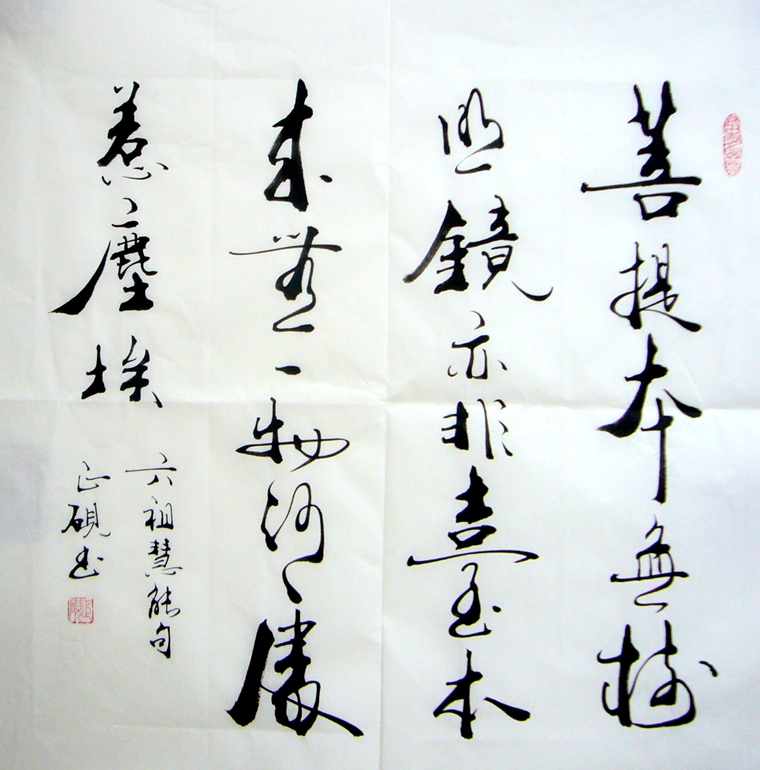 菩提本無樹
明鏡亦非臺本
來無一物何處
惹塵埃
六祖慧能句
正硯书